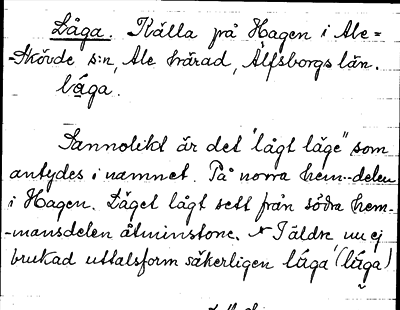 Låga. Källa på Hagen i Ale=
-Skövde s:n, Ale härad, Älfsborgs län.
låga.
Sannolikt är det "lågt läge" som
antydes i namnet. På norra hem--delen
i Hagen. Läget lågt sett från södra hem-
-mansdelen åtminstone. * I äldre, nu ej
brukad uttalsform säkerligen låga (låga)